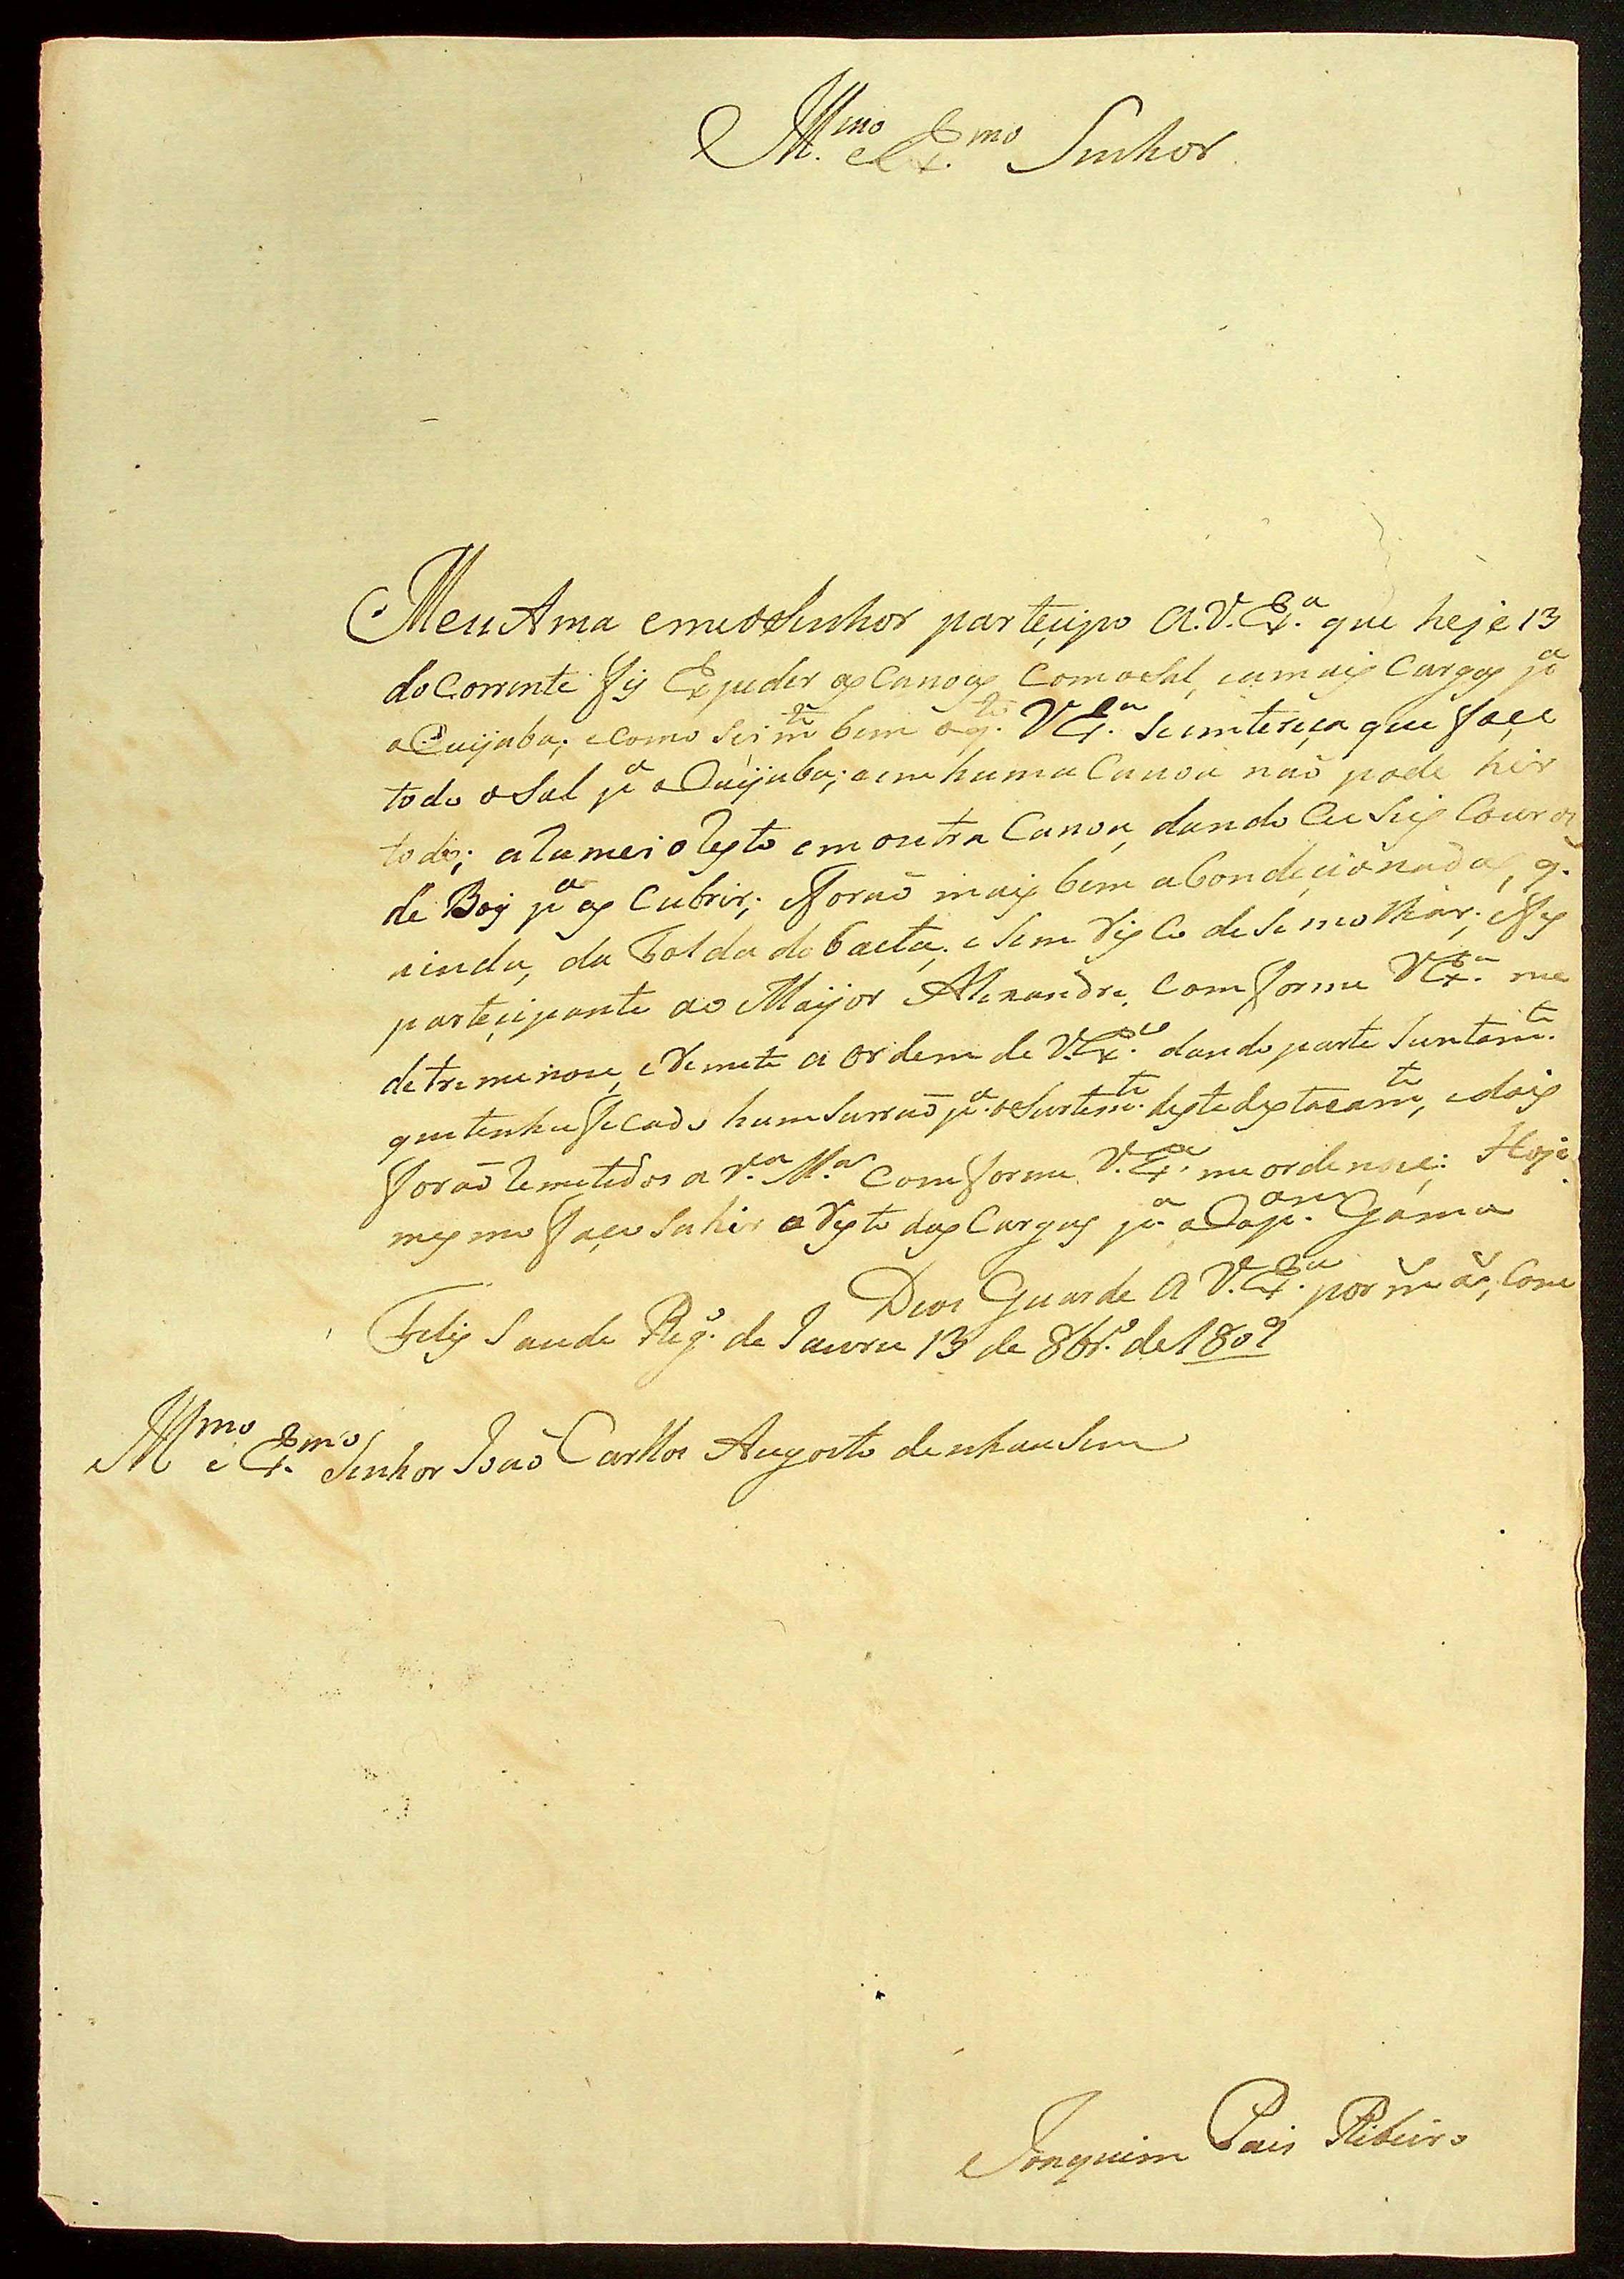 Ill.mo e Ex.mo Senhor
Meu Ama emeo Senhor parteçipo A.V.Ex.a que heje 13
do Corrente fis Expedir as Canoas Com o Sal, eamais Cargas p.a
o Cuijaba; ecomo sei m.to bem o q.to V Ex.a seintereça que façe
todo o Sal p.a o Cuijaba; eem huma Canoa não pode hir
todo; o resto em outra Canoa, dando lhe Couros
de Boy p.a as Cubrir; eforão mais bem abondiçionadas, q.
ainda, da Tolda de baeta; e Sem Risco de Se molhar; e fis
parteçipante ao Maijor Alexandre, Com forme V Ex.a me
detreminou, e Remete a ordem de V.Ex.a dando parte Juntam.te
que tenha ficado hum Surrão p.a o Surtim.to deste destacam.to, e dois
forão Remetidos a V.a M.a Comforme V.Ex.a me ordenou: Hoje
mesmo faço Sahir o Resto das Cargas p.a o Gama
Deos Guarde A V.Ex.a por m.s a.s, Com
Felis Saude Reg.o de Jauru 13 de 8br.o de 1809
Ill.mo e Ex.mo Senhor João Carllos Augosto denhausem
Joaquim Pais Ribeiro